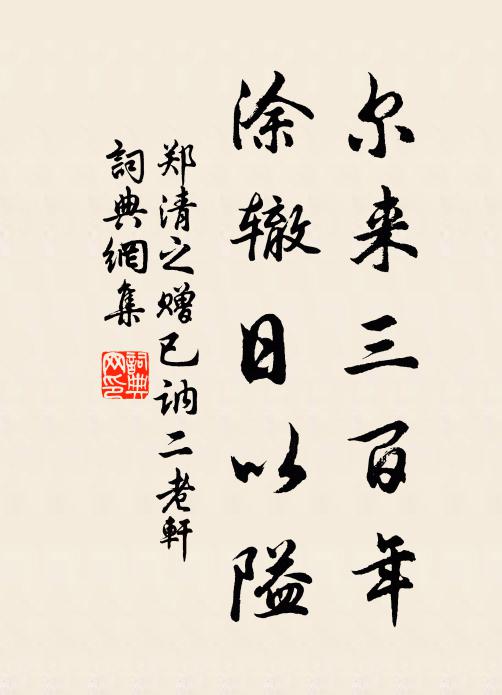 尔来三百年
涂辙日以隘
郑清之赠已讷二老軒
詞典網集
詞典
网印